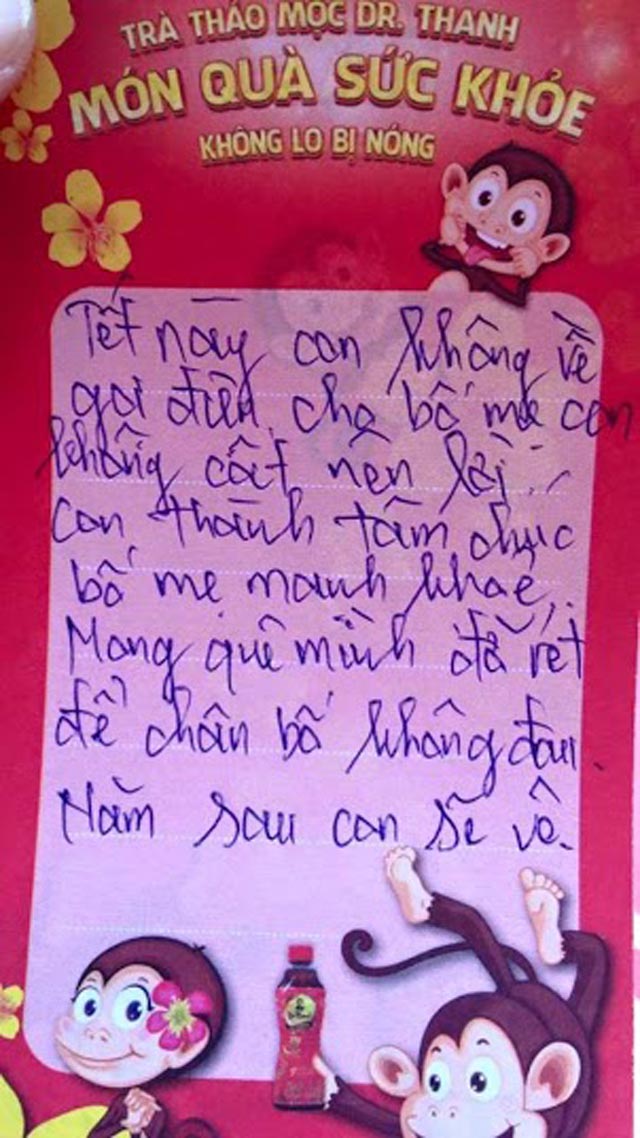 TRÀ THẢO MỘC DR. THANH
MÓN QUÀ SỨC KHỎE
KHÔNG LO BỊ NÓNG
Tết này con không về
gọi điện cho bố mẹ con
không cất nên lời.
Con thành tâm chúc
bố mẹ mạnh khoẻ.
Mong quê mình đỡ rét
để chân bố không đau.
Năm sau con sẽ về.